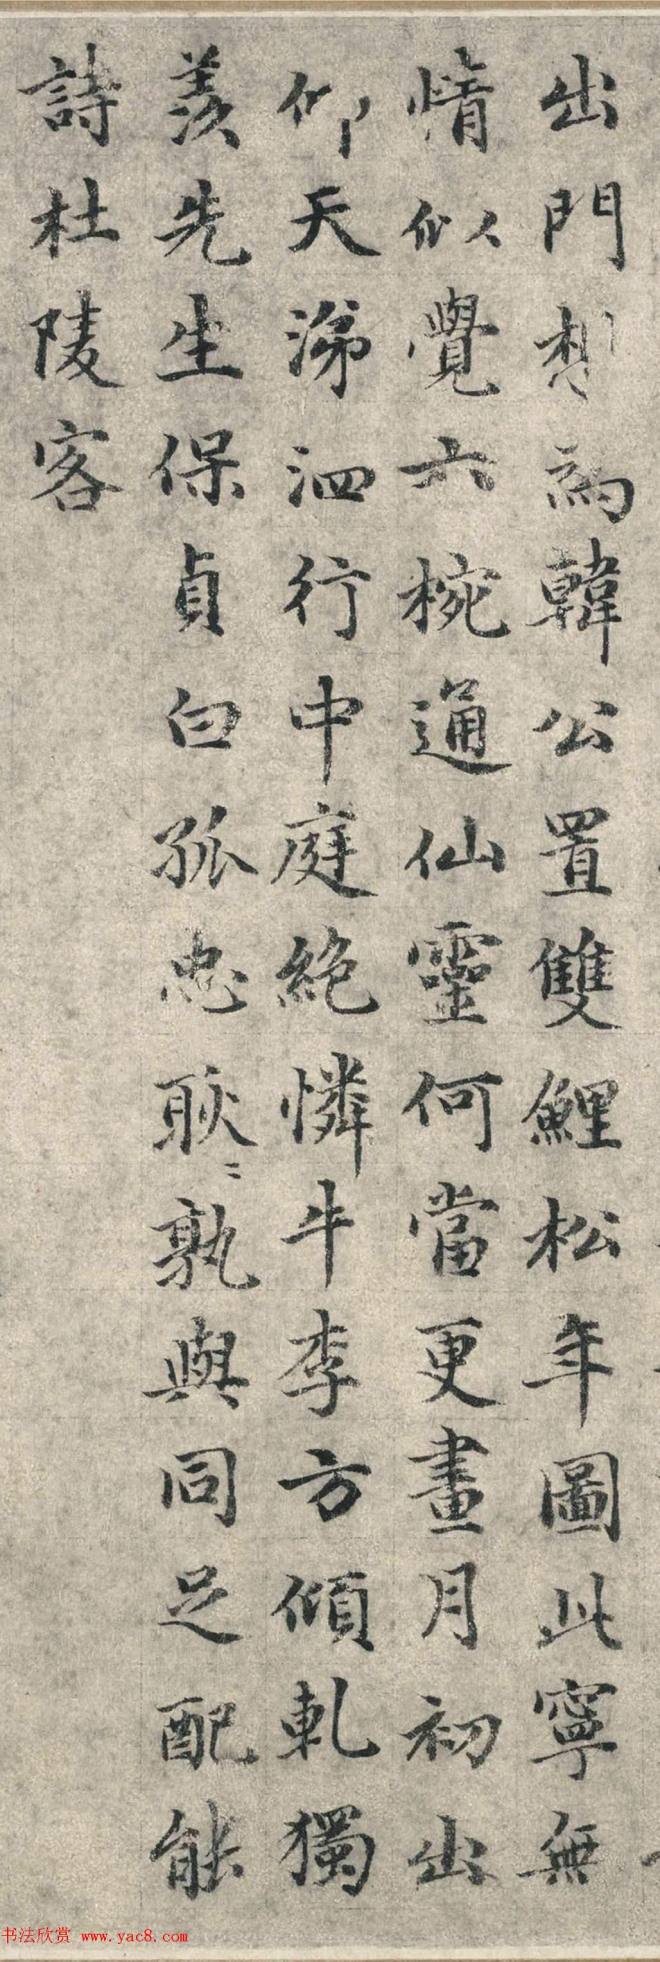 出門想為韓公置雙鯉松年圖此寧無
情似覺六椀通仙靈何當更畫月初出
仰天涕泗行中庭絶憐牛李方傾軋獨
羨先生保貞白孤忠耿〻孰與同足配能
詩杜陵客
书法欣赏 www.yac8.com